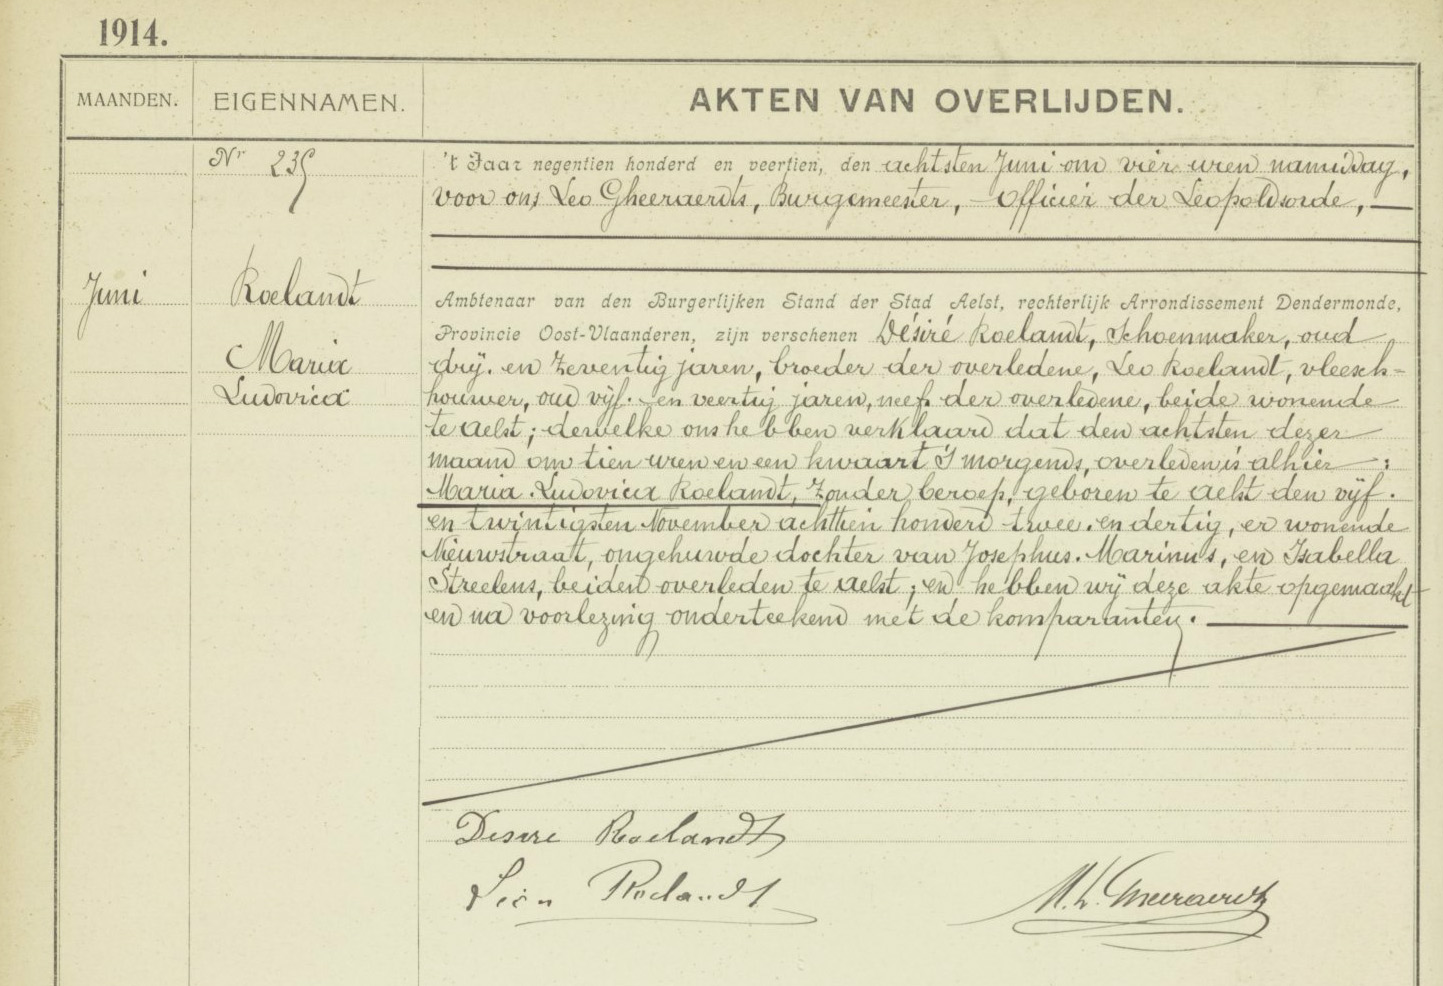 1914.
MAANDEN. EIGENNAMEN. AKTEN VAN OVERLIJDEN.
Nr 235
't Jaar negentien honderd en veertien, den achtsten Juni om vier uren namiddag,
voor ons Leo Gheeraerdts, Burgemeester, - Officier der Leopoldsorde, —
Juni
Roelandt
Maria
Ludovica
Ambtenaar van den Burgerlijken Stand der Stad Aelst, rechterlijk Arrondissement Dendermonde,
Provincie Oost-Vlaanderen, zijn verschenen Désiré Roelandt, Schoenmaker, oud
dry. en zeventig jaren, broeder der overledene, Leo Roelandt, vleesch-
houwer, oud vijf. en veertig jaren, neef der overledene, beide wonende
te Aelst; dewelke ons hebben verklaard dat den achtsten dezer
maand om tien uren en een kwaart 's morgends, overleden is alhier — :
Maria. Ludovica Roelandt, zonder beroep, geboren te Aelst den vijf.
en twintigsten November achttien honderd twee. en dertig, er wonende
Nieuwstraat, ongehuwde dochter van Josephus. Marinus, en Isabella
Streelens, beiden overleden te Aelst; en hebben wij deze akte opgemaakt
en na voorlezing onderteekend met de komparanten. —
Desire Roelandt
Leon Roelandt
M. L. Gheeraerdts